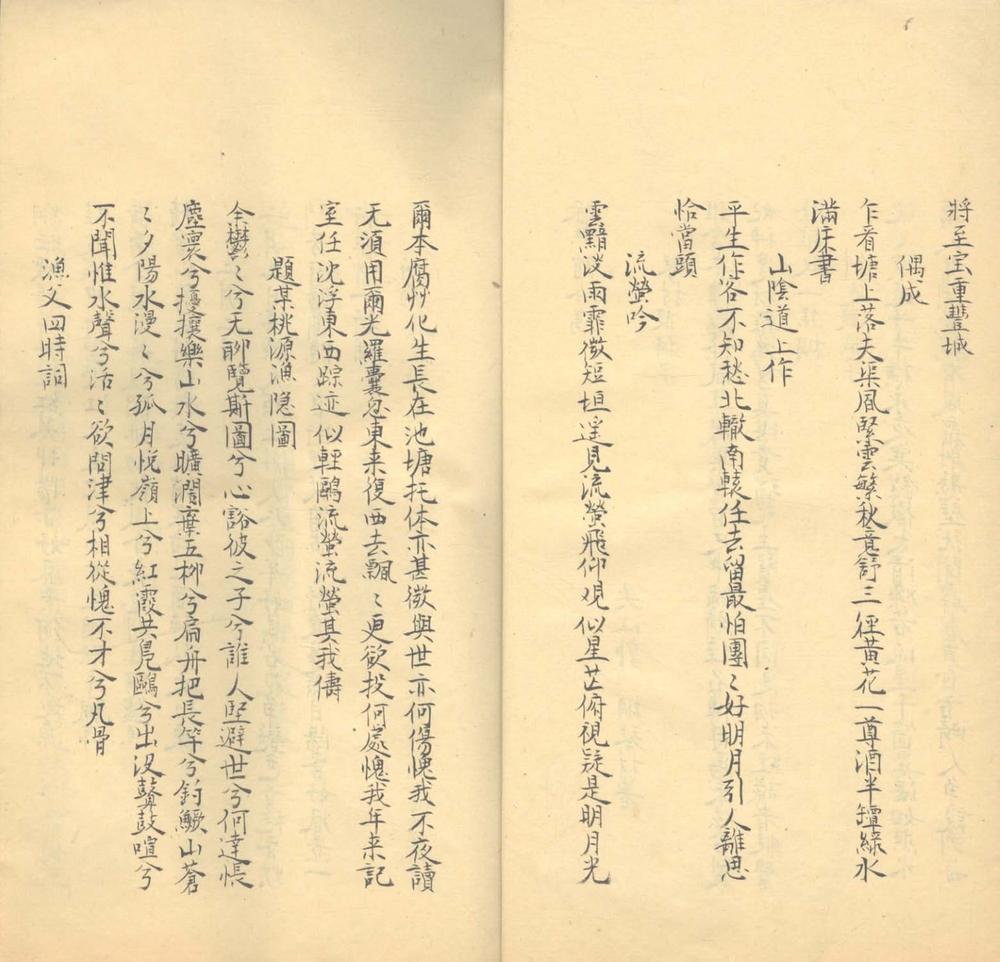 將至宝重豐城
偶成
乍看塘上落夫渠風緊雲繁秋意舒三徑黃花一尊酒半壇綠水
滿床書
山陰道上作
平生作客不知愁北轍南轅任去留最怕團〻好明月引人離思
恰當頭
流螢吟
雲黯淡雨霏微短垣遥見流螢飛仰观似星芒俯視疑是明月光
爾本腐艸化生長在池塘托体亦甚微與世亦何傷愧我不夜讀
无須用爾光羅囊忽東来復西去飄〻更欲投何處愧我年来記
室任沈浮東西踪迹似軽鷗流螢流螢其我儔
題某桃源漁隐圖
余鬱〻兮无聊覽斯圖兮心豁彼之子兮誰人堅避世兮何達悵
塵寰兮擾攘樂山水兮曠濶棄五柳兮扁舟把長竿兮釣鱖山蒼
〻夕陽水漫〻兮孤月悦嶺上兮紅霞共凫鷗兮出没鼙鼓喧兮
不聞惟水聲兮活〻欲問津兮相從愧不才兮凡骨
漁父四時詞